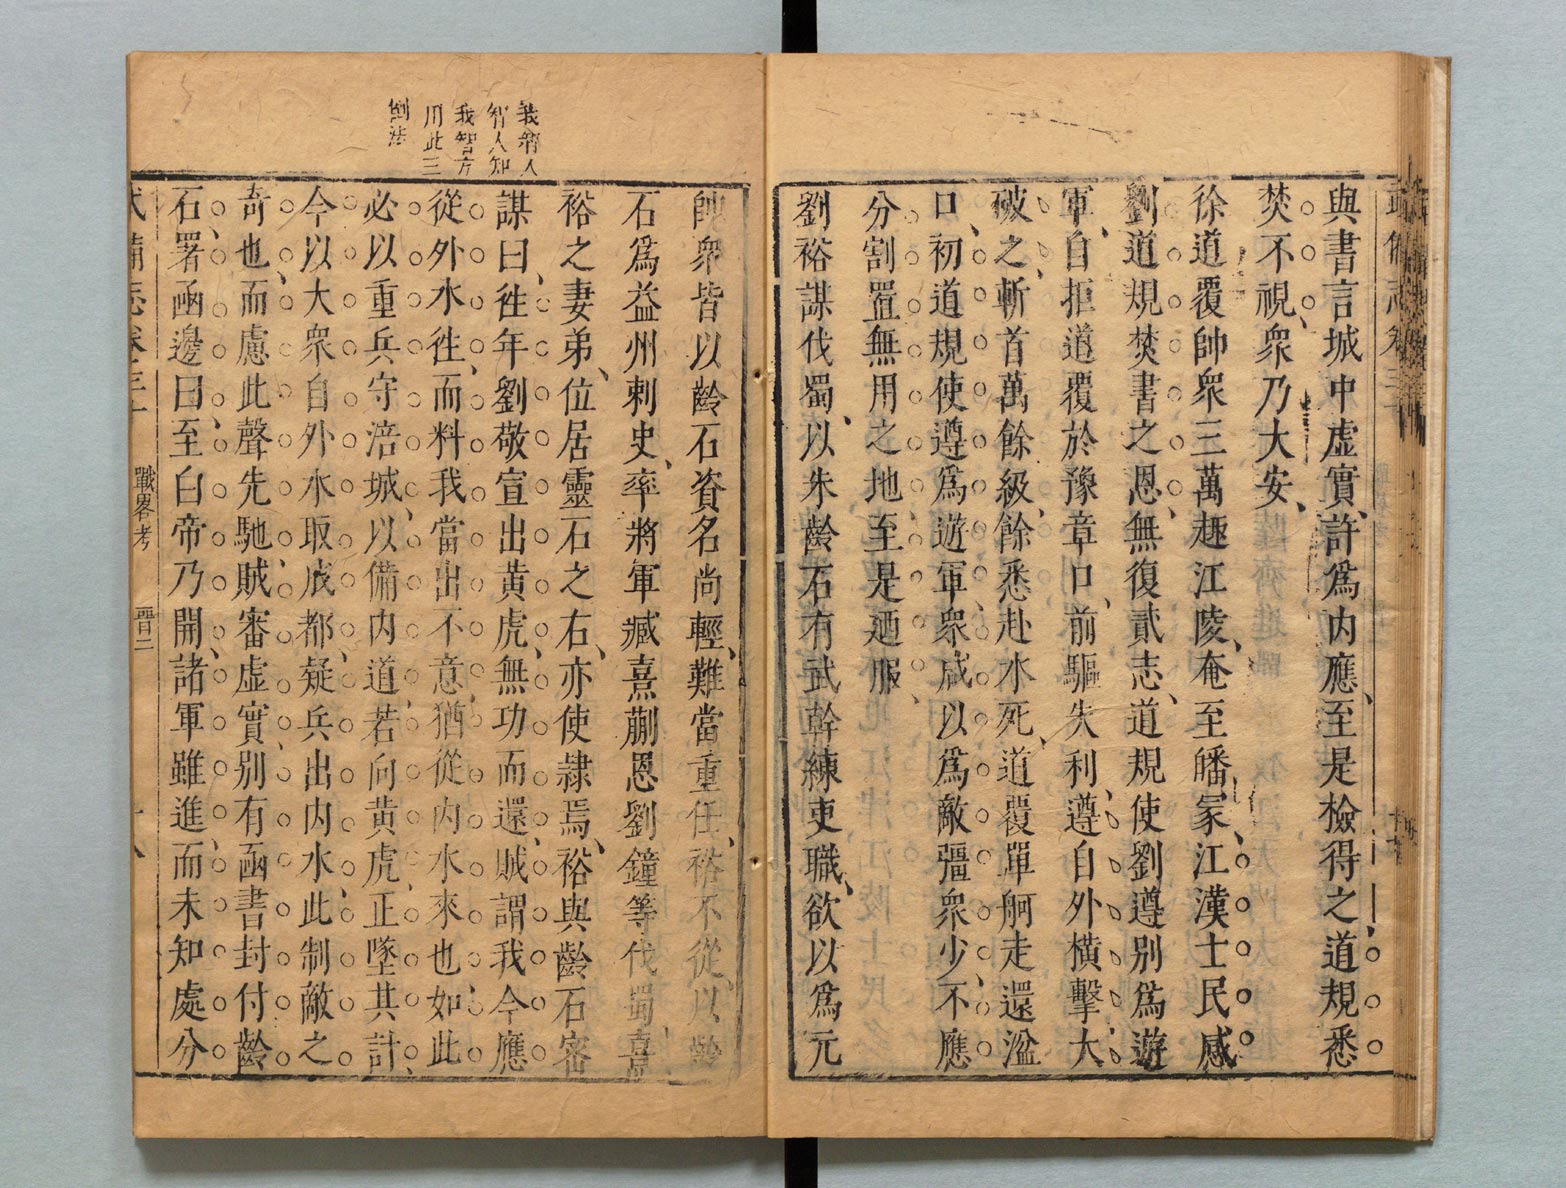 與書言城中虛實、許爲内應、至是檢得之、道規悉
焚不視、衆乃大安、
徐道覆帥衆三萬趣江陵、奄至皤冢、江漢士民感
劉道規焚書之恩、無復貳志、道規使劉遵别爲遊
軍、自拒道覆於豫章口、前驅失利、遵自外横擊、大
破之、斬首萬餘級、餘悉赴水死、道覆單舸走還湓
口、初道規使遵爲遊軍、衆咸以爲敵彊衆少、不應
分割置無用之地、至是廼服、
劉裕謀伐蜀、以朱齡石有武幹練吏職、欲以爲元
我稱人
智人知
我智方
用此三
倒法
帥衆皆以齡石資名尚輕、難當重任、裕不從、以齡
石爲益州刺史、率將軍臧熹蒯恩劉鐘等伐蜀、熹
裕之妻弟、位居靈石之右、亦使隸焉、裕與齡石密
謀曰、往年劉敬宣出黄虎、無功而還、賊謂我今應
從外水往、而料我當出不意、猶從内水來也、如此
必以重兵守涪城、以備内道、若向黄虎、正墜其計、
今以大衆自外水取成都、疑兵出内水、此制敵之
奇也、而慮此聲先馳、賊審虛實、别有函書封付齡
石、署函邊曰、至白帝乃開、諸軍雖進、而未知處分
武備志卷三十 戰畧考 晉二